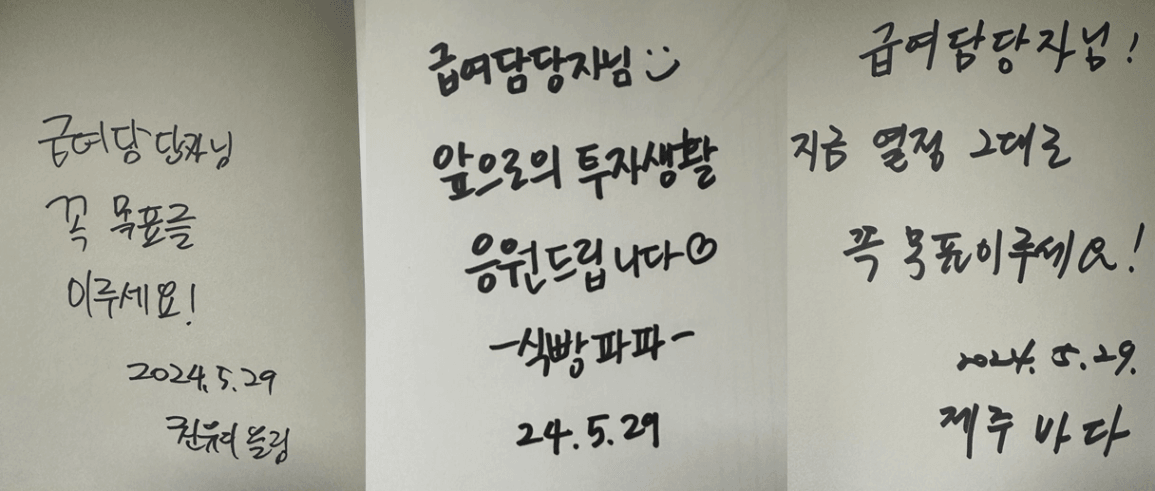 급여담당자님
꼭 목표를
이루세요!
2024.5.29
퀸유리블링
급여담당자님
앞으로의 투자생활
응원드립니다
-식빵파파-
24.5.29
급여담당자님!
지금 열정 그대로
꼭 목표이루세요!
2024.5.29.
제주바다